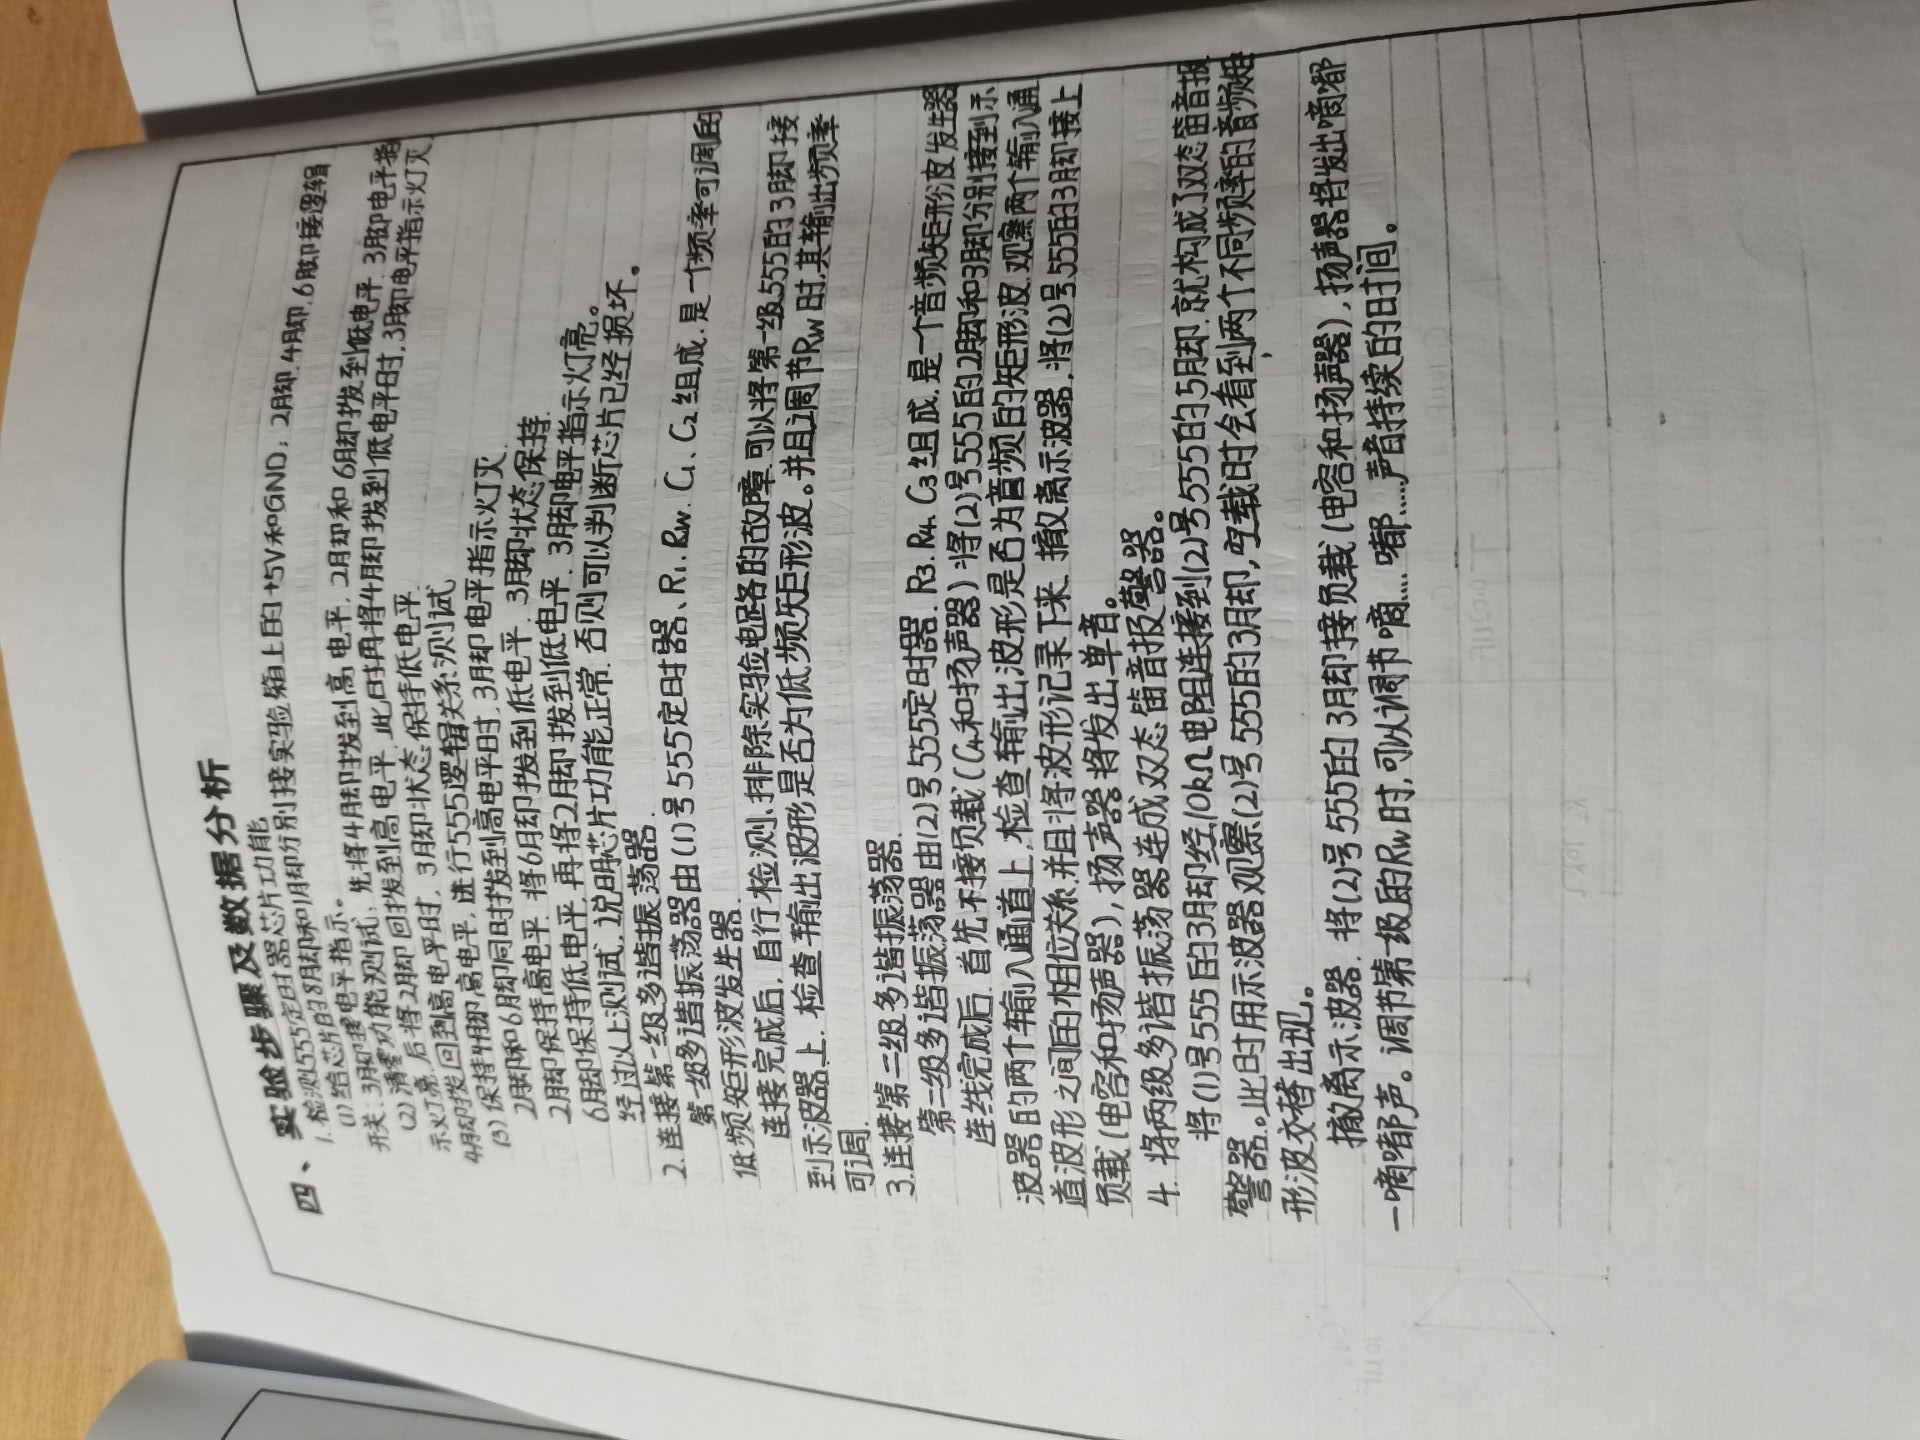 四、实验步骤及数据分析
1.检测555定时器芯片功能
(1)给芯片的8脚和1脚分别接实验箱上的+5V和GND；2脚.4脚.6脚接逻辑
开关；3脚接电平指示。
(2)清零功能测试，先将4脚拨到高电平，2脚和6脚拨到低电平，3脚电平指
示灯亮，后将2脚回拨到高电平，此时再将4脚拨到低电平时，3脚电平指示灯灭，
4脚拨回到高电平时，3脚状态保持低电平.
(3)保持4脚高电平，进行555逻辑关系测试
2脚和6脚同时拨到高电平时，3脚电平指示灯灭.
2脚保持高电平，将6脚拨到低电平，3脚状态保持.
6脚保持低电平，再将2脚拨到低电平，3脚电平指示灯亮。
经过以上测试，说明芯片功能正常，否则可以判断芯片已经损坏。
2.连接第一级多谐振荡器.
第一级多谐振荡器由(1)号555定时器、R1、Rw、C1、C2组成，是一个频率可调的
低频矩形波发生器.
连接完成后，自行检测、排除实验电路的故障，可以将第一级555的3脚接
到示波器上，检查输出波形是否为低频矩形波。并且调节Rw时，其输出频率
可调.
3.连接第二级多谐振荡器.
第二级多谐振荡器由(2)号555定时器，R3、R4、C3组成，是一个音频矩形波发生器
连线完成后，首先不接负载(C4和扬声器)将(2)号555的2脚和3脚分别接到示
波器的两个输入通道上，检查输出波形是否为音频的矩形波，观察两个输入通
道波形之间的相位关系，并且将波形记录下来，撤离示波器，将(2)号555的3脚接上
负载(电容和扬声器)，扬声器将发出单音。
4.将两级多谐振荡器连成双态笛音报警器。
将(1)号555的3脚经10kΩ电阻连接到(2)号555的5脚，就构成了双态笛音报
警器。此时用示波器观察(2)号555的3脚，空载时会看到两个不同频率的音频矩
形波交替出现。
撤离示波器，将(2)号555的3脚接负载(电容和扬声器)，扬声器将发出嘀嘟
一嘀嘟声。调节第一级的Rw时，可以调节嘀....嘟.....声音持续的时间。